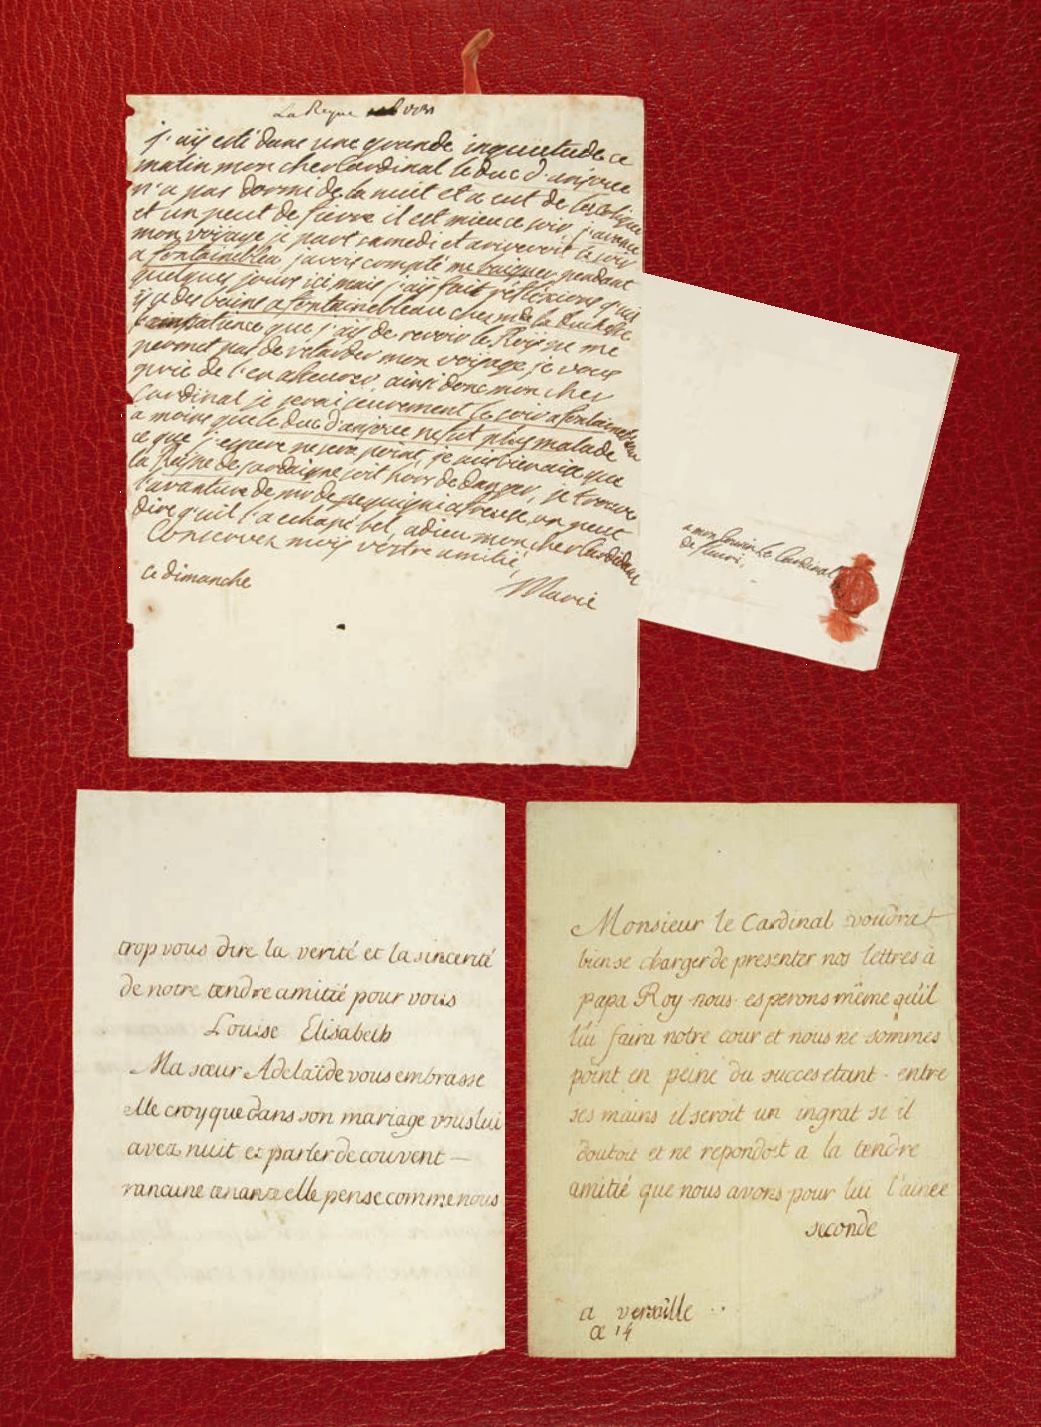 La Reyne
j'aÿ esté dans une grande inquietude ce
matin mon cher Cardinal le duc d'anjoue
n'a pas dormi de la nuit et a eut de la colique
et un peut de fievre il est mieux ce soir j'avance
mon voyage je part samedi et ariverait le soir
a fontainebleu j'avois compté me baigner pendant
quelques jours ici mais j'aÿ fait réfléxions qui
ÿ a des bains a fontainebleau ches mde la duchesse
l'impatience que j'aÿ de revoir le Roÿ ne me
permet pas de retarder mon voyage je vous
prie de l'en asseurer, ainsi donc mon cher
Cardinal je serai seurement le soir a fontainebleau
a moins que le duc d'anjoue ne fut plus malade
ce que j'espere ne sera point, je suis bien aise que
la Reine de sardaigne soit hors de danger, je trouve
l'avanture de mr de pequigni afreuse, on peut
dire qu'il l'a echapé bel adieu mon cher Cardinal
Conservez moÿ vostre amitié,
ce dimanche
Marie
a mon Cousin Le Cardinal
de fleuri.
trop vous dire la verité et la sincerité
de notre tendre amitié pour vous
Louise Elisabeth
Ma sœur Adelaïde vous embrasse
elle croy que dans son mariage vous lui
avez nuit et parler de couvent —
rancune tenante elle pense comme nous
Monsieur le Cardinal voudrat
bien se charger de presenter nos lettres à
papa Roy nous esperons même qu'il
lui faira notre cour et nous ne sommes
point en peine du succes etant entre
ses mains il seroit un ingrat si il
doutoit et ne repondoit a la tendre
amitié que nous avons pour lui l'ainée
seconde
a versaille
ce 14